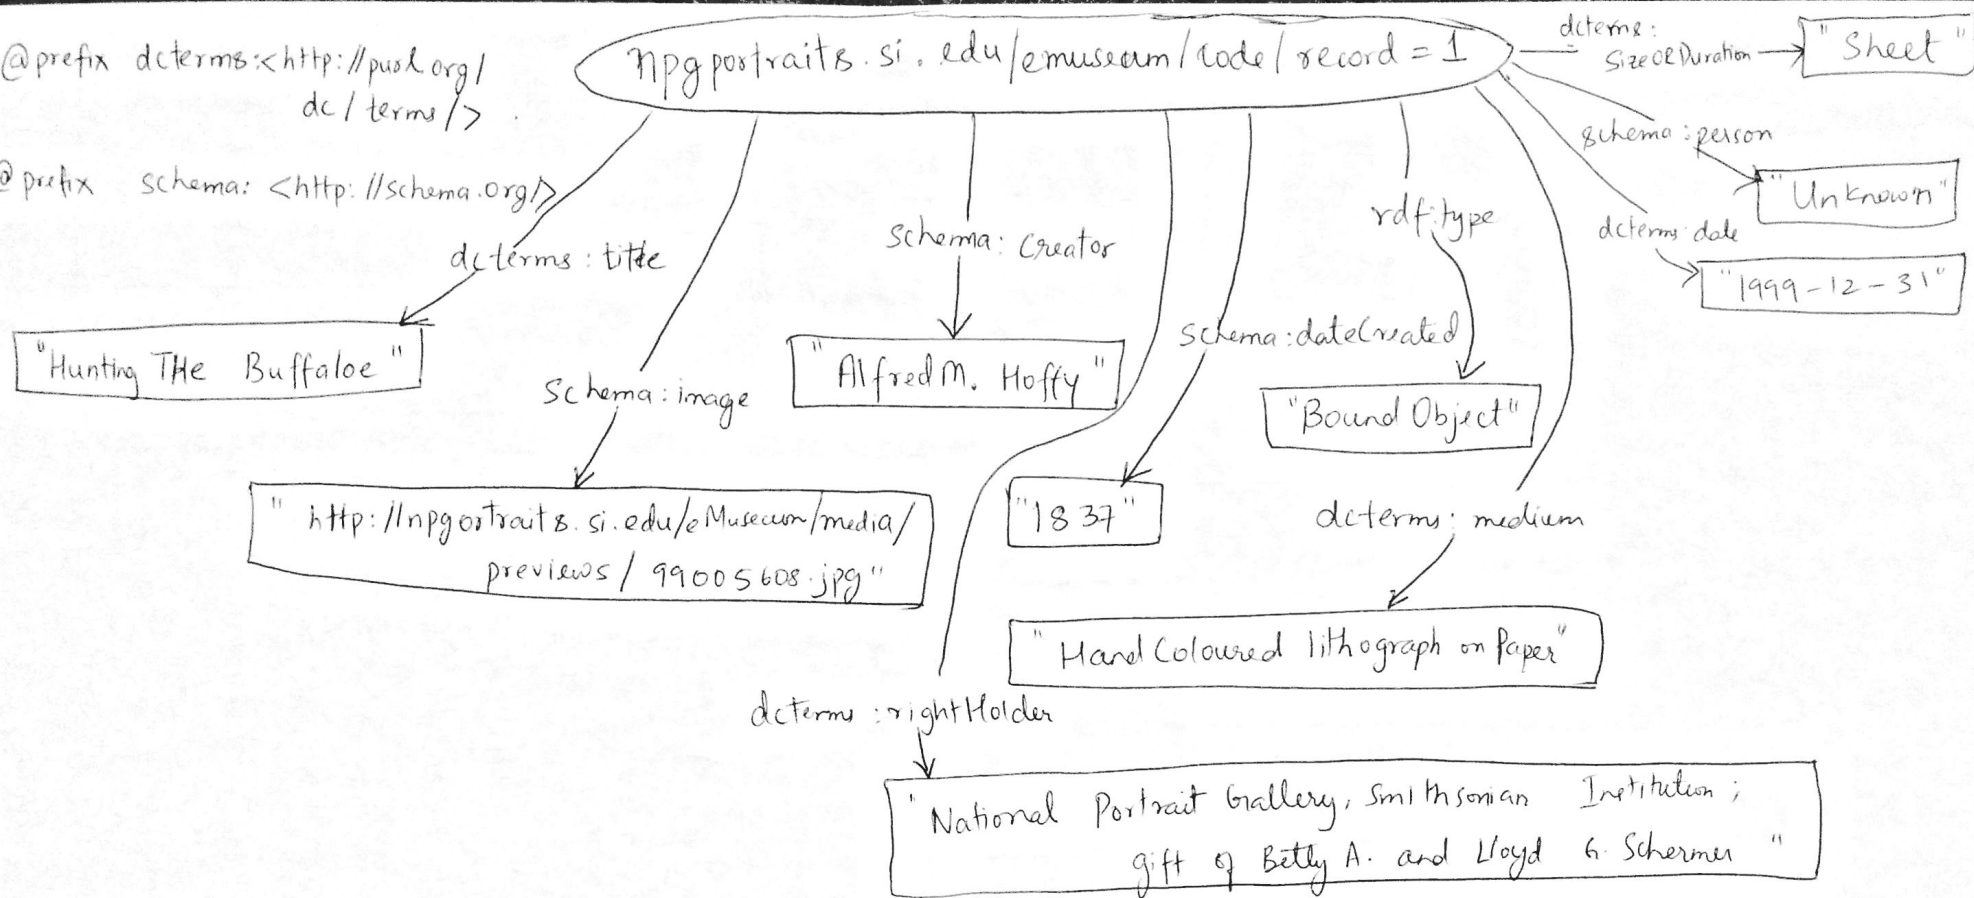 @prefix dcterms:<http://purl.org/
dc/terms/>
@prefix schema: <http://schema.org/>
npgportraits.si.edu/emuseum/code/record=1
dcterms:
SizeORDuration
"Sheet"
schema:person
"Unknown"
dcterms:date
"1999-12-31"
dcterms:title
"Hunting THe Buffaloe"
schema:image
"http://npgortraits.si.edu/eMuseum/media/
previews/99005608.jpg"
schema:creator
"Alfred M. Hoffy"
schema:dateCreated
"1837"
rdf:type
"Bound Object"
dcterms:medium
"Hand Coloured lithograph on Paper"
dcterms:rightHolder
"National Portrait Gallery, Smithsonian Institution;
gift of Betty A. and Lloyd G. Schermer"